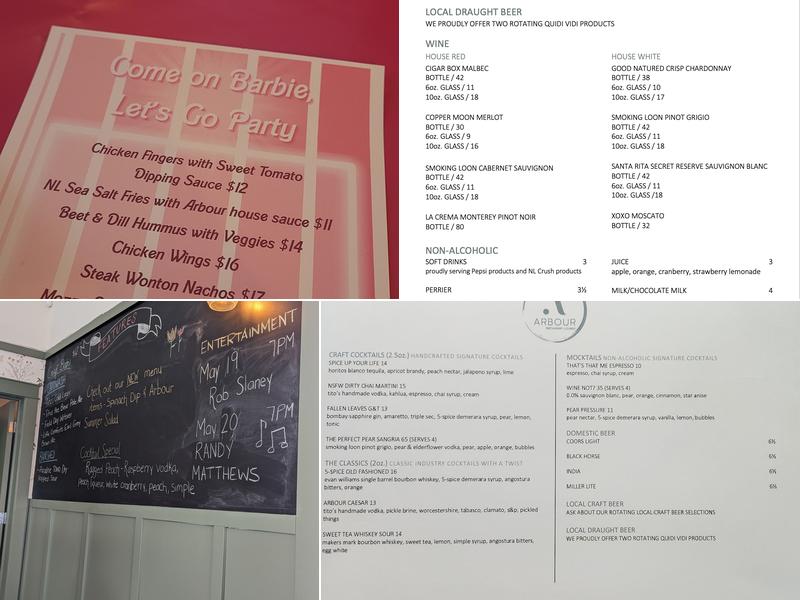 Come on Barbie,
Let's Go Party
Chicken Fingers with Sweet Tomato
Dipping Sauce $12
NL Sea Salt Fries with Arbour house sauce $11
Beet & Dill Hummus with Veggies $14
Chicken Wings $16
Steak Wonton Nachos $17
LOCAL DRAUGHT BEER
WE PROUDLY OFFER TWO ROTATING QUIDI VIDI PRODUCTS
WINE
HOUSE RED
CIGAR BOX MALBEC
BOTTLE / 42
6oz. GLASS / 11
10oz. GLASS / 18
COPPER MOON MERLOT
BOTTLE / 30
6oz. GLASS / 9
10oz. GLASS / 16
SMOKING LOON CABERNET SAUVIGNON
BOTTLE / 42
6oz. GLASS / 11
10oz. GLASS / 18
LA CREMA MONTEREY PINOT NOIR
BOTTLE / 80
HOUSE WHITE
GOOD NATURED CRISP CHARDONNAY
BOTTLE / 38
6oz. GLASS / 10
10oz. GLASS / 17
SMOKING LOON PINOT GRIGIO
BOTTLE / 42
6oz. GLASS / 11
10oz. GLASS / 18
SANTA RITA SECRET RESERVE SAUVIGNON BLANC
BOTTLE / 42
6oz. GLASS / 11
10oz. GLASS /18
XOXO MOSCATO
BOTTLE / 32
NON-ALCOHOLIC
SOFT DRINKS 3
proudly serving Pepsi products and NL Crush products
PERRIER 3½
JUICE 3
apple, orange, cranberry, strawberry lemonade
MILK/CHOCOLATE MILK 4
FEATURES
Check out our NEW menu
items - Spinach Dip & Arbour
Summer Salad
Cocktail Special
Ragged Peach - Raspberry vodka,
peach liqueur, white cranberry, peach, simple
ENTERTAINMENT
May 19 7PM
Rob Slaney
May 20 7PM
RANDY
MATTHEWS
ARBOUR
CRAFT COCKTAILS (2.5oz.) HANDCRAFTED SIGNATURE COCKTAILS
SPICE UP YOUR LIFE 14
hornitos blanco tequila, apricot brandy, peach nectar, jalapeno syrup, lime
NSFW DIRTY CHAI MARTINI 15
tito's handmade vodka, kahlua, espresso, chai syrup, cream
FALLEN LEAVES G&T 13
bombay sapphire gin, amaretto, triple sec, 5-spice demerara syrup, pear, lemon,
tonic
THE PERFECT PEAR SANGRIA 65 (SERVES 4)
smoking loon pinot grigio, pear & elderflower vodka, pear, apple, orange, bubbles
THE CLASSICS (2oz.) CLASSIC INDUSTRY COCKTAILS WITH A TWIST
5-SPICE OLD FASHIONED 16
evan williams single barrel bourbon whiskey, 5-spice demerara syrup, angostura
bitters, orange
ARBOUR CAESAR 13
tito's handmade vodka, pickle brine, worcestershire, tabasco, clamato, s&p, pickled
things
SWEET TEA WHISKEY SOUR 14
makers mark bourbon whiskey, sweet tea, lemon, simple syrup, angostura bitters,
egg white
MOCKTAILS NON-ALCOHOLIC SIGNATURE COCKTAILS
THAT'S THAT ME ESPRESSO 10
espresso, chai syrup, cream
WINE NOT? 35 (SERVES 4)
0.0% sauvignon blanc, pear, orange, cinnamon, star anise
PEAR PRESSURE 11
pear nectar, 5-spice demerara syrup, vanilla, lemon, bubbles
DOMESTIC BEER
COORS LIGHT 6½
BLACK HORSE 6½
INDIA 6½
MILLER LITE 6½
LOCAL CRAFT BEER
ASK ABOUT OUR ROTATING LOCAL CRAFT BEER SELECTIONS
LOCAL DRAUGHT BEER
WE PROUDLY OFFER TWO ROTATING QUIDI VIDI PRODUCTS